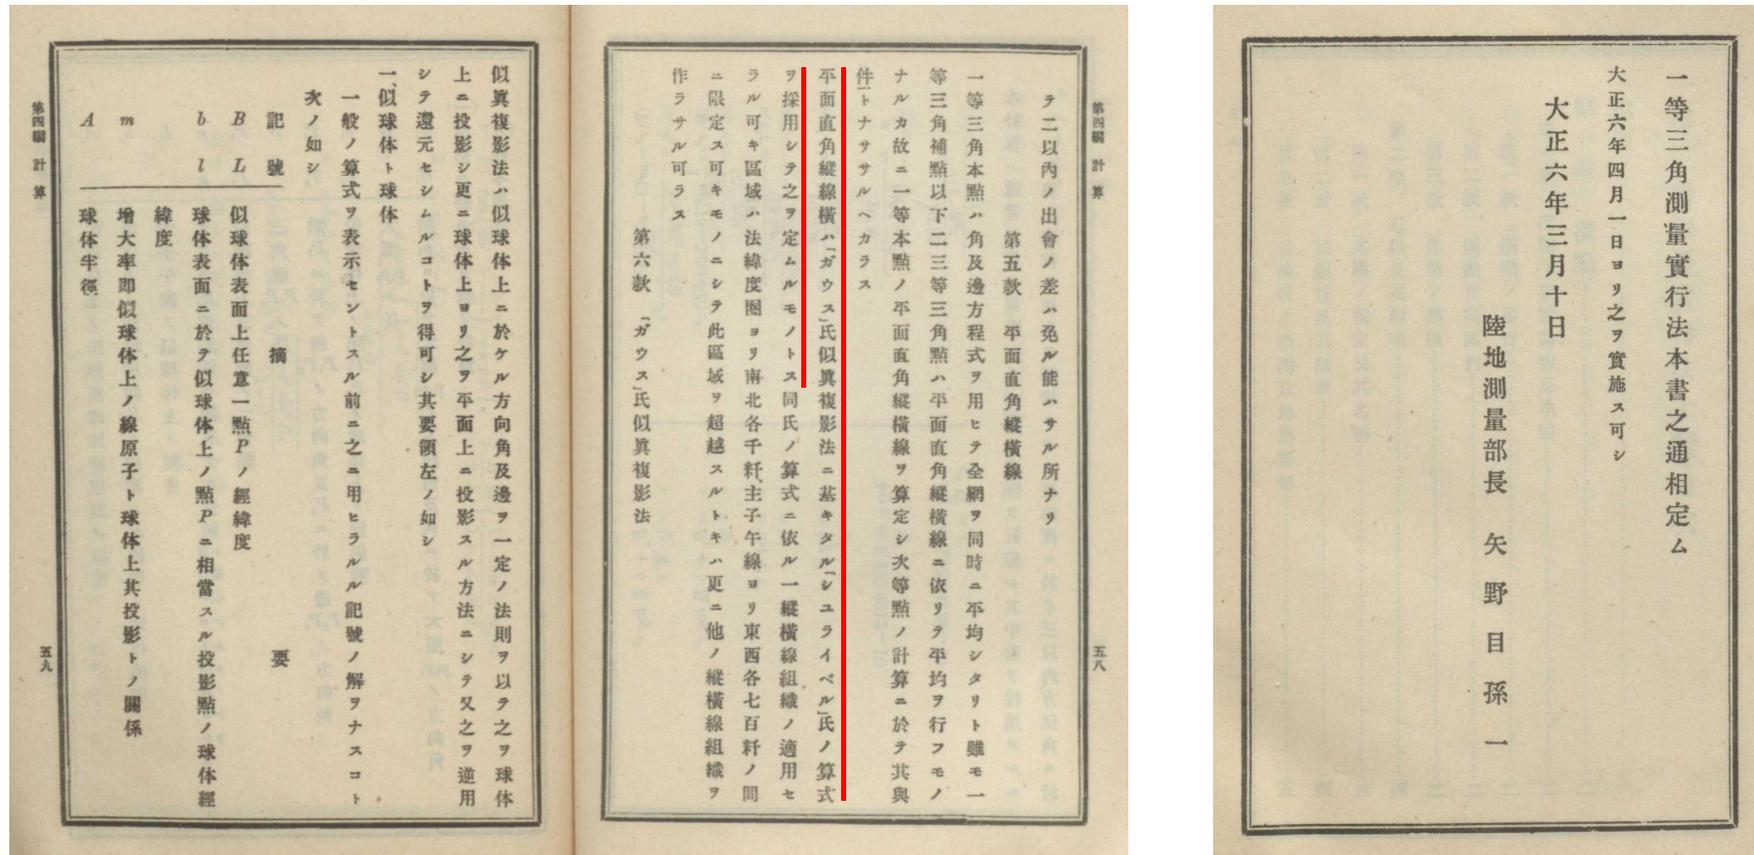 一等三角測量實行法本書之通相定ム
大正六年四月一日ヨリ之ヲ實施ス可シ
大正六年三月十日
陸地測量部長　矢野目孫一
第四編　計算
五八
テ二以內ノ出會ノ差ハ免ル能ハサル所ナリ
第五款　平面直角縱橫線
一等三角本點ハ角及邊方程式ヲ用ヒテ全網ヲ同時ニ平均シタリト雖モ一
等三角補點以下二三等三角點ハ平面直角縱橫線ニ依リテ平均ヲ行フモノ
ナルカ故ニ一等本點ノ平面直角縱橫線ヲ算定シ次等點ノ計算ニ於テ其與
件トナササルヘカラス
平面直角縱線橫ハ「ガウス」氏似眞複影法ニ基キタル「シユライベル」氏ノ算式
ヲ採用シテ之ヲ定ムルモノトス同氏ノ算式ニ依ル一縱橫線組織ノ適用セ
ラル可キ區域ハ法緯度圈ヨリ南北各千粁、主子午線ヨリ東西各七百粁ノ間
ニ限定ス可キモノニシテ此區域ヲ超越スルトキハ更ニ他ノ縱橫線組織ヲ
作ラサル可ラス
第六款　「ガウス」氏似眞複影法
似眞複影法ハ似球体上ニ於ケル方向角及邊ヲ一定ノ法則ヲ以テ之ヲ球体
上ニ投影シ更ニ球体上ヨリ之ヲ平面上ニ投影スル方法ニシテ又之ヲ逆用
シテ還元セシムルコトヲ得可シ其要領左ノ如シ
一、似球体ト球体
一般ノ算式ヲ表示セントスル前ニ之ニ用ヒラルル記號ノ解ヲナスコト
次ノ如シ
記號　摘要
B L　似球体表面上任意一點Pノ經緯度
b l　球体表面ニ於テ似球体上ノ點Pニ相當スル投影點ノ球体經
緯度
m　增大率即似球体上ノ線原子ト球体上其投影トノ關係
A　球体半徑
第四編　計算
五九